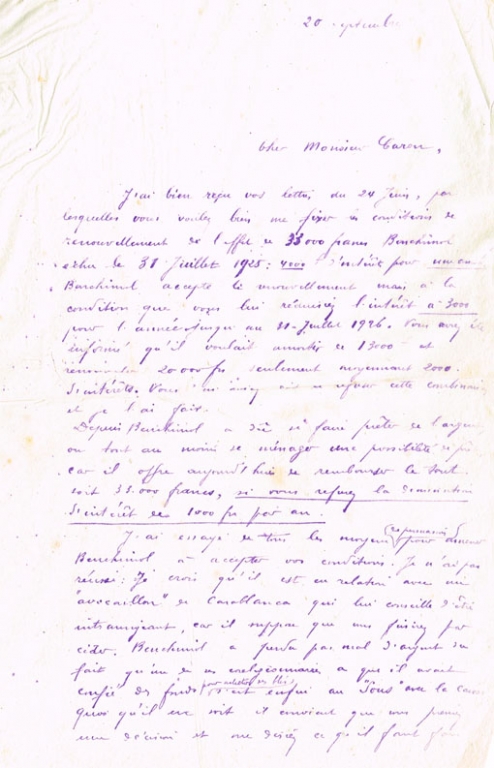 20 Septembre
Cher Monsieur Caren,
J'ai bien reçu vos lettres du 24 Juin, par
lesquelles vous voulez bien me fixer les conditions de
renouvellement de l'effet de 33000 francs Benchimol
échu le 31 Juillet 1925: 4000 d'intérêts pour un an
Benchimol accepte le renouvellement mais à la
condition que vous lui réduisiez l'intérêt à 3000
pour l'année jusqu'au 31 Juillet 1926. Vous avez été
informé qu'il voulait amortir de 13000 et
20 000 frs seulement moyennant 2000
d'intérêts. Vous refuser cette
et je l'ai fait.
Depuis Benchimol a dû se faire prêter de l'argent
ou tout au moins se ménager une possibilité
car il offre aujourd'hui de rembourser le tout
soit 33.000 francs, si vous refusez la diminution
d'intérêt de 1000 frs par an.
J'ai essayé de tous les moyens pour amener
Benchimol à accepter vos conditions. Je n'ai pas
réussi: Je crois qu'il est en relation avec un
"avocaillon" de Casablanca qui lui conseille d'être
intransigeant, car il suppose que vous finirez par
céder. Benchimol a perdu pas mal d'argent du
fait qu'un de ses coreligionnaires a que il avait
confié des fonds pour achats de blés s'est enfui au "Sous" avec la caisse
quoi qu'il en soit il convient que vous preniez
une décision et me disiez ce qu'il faut